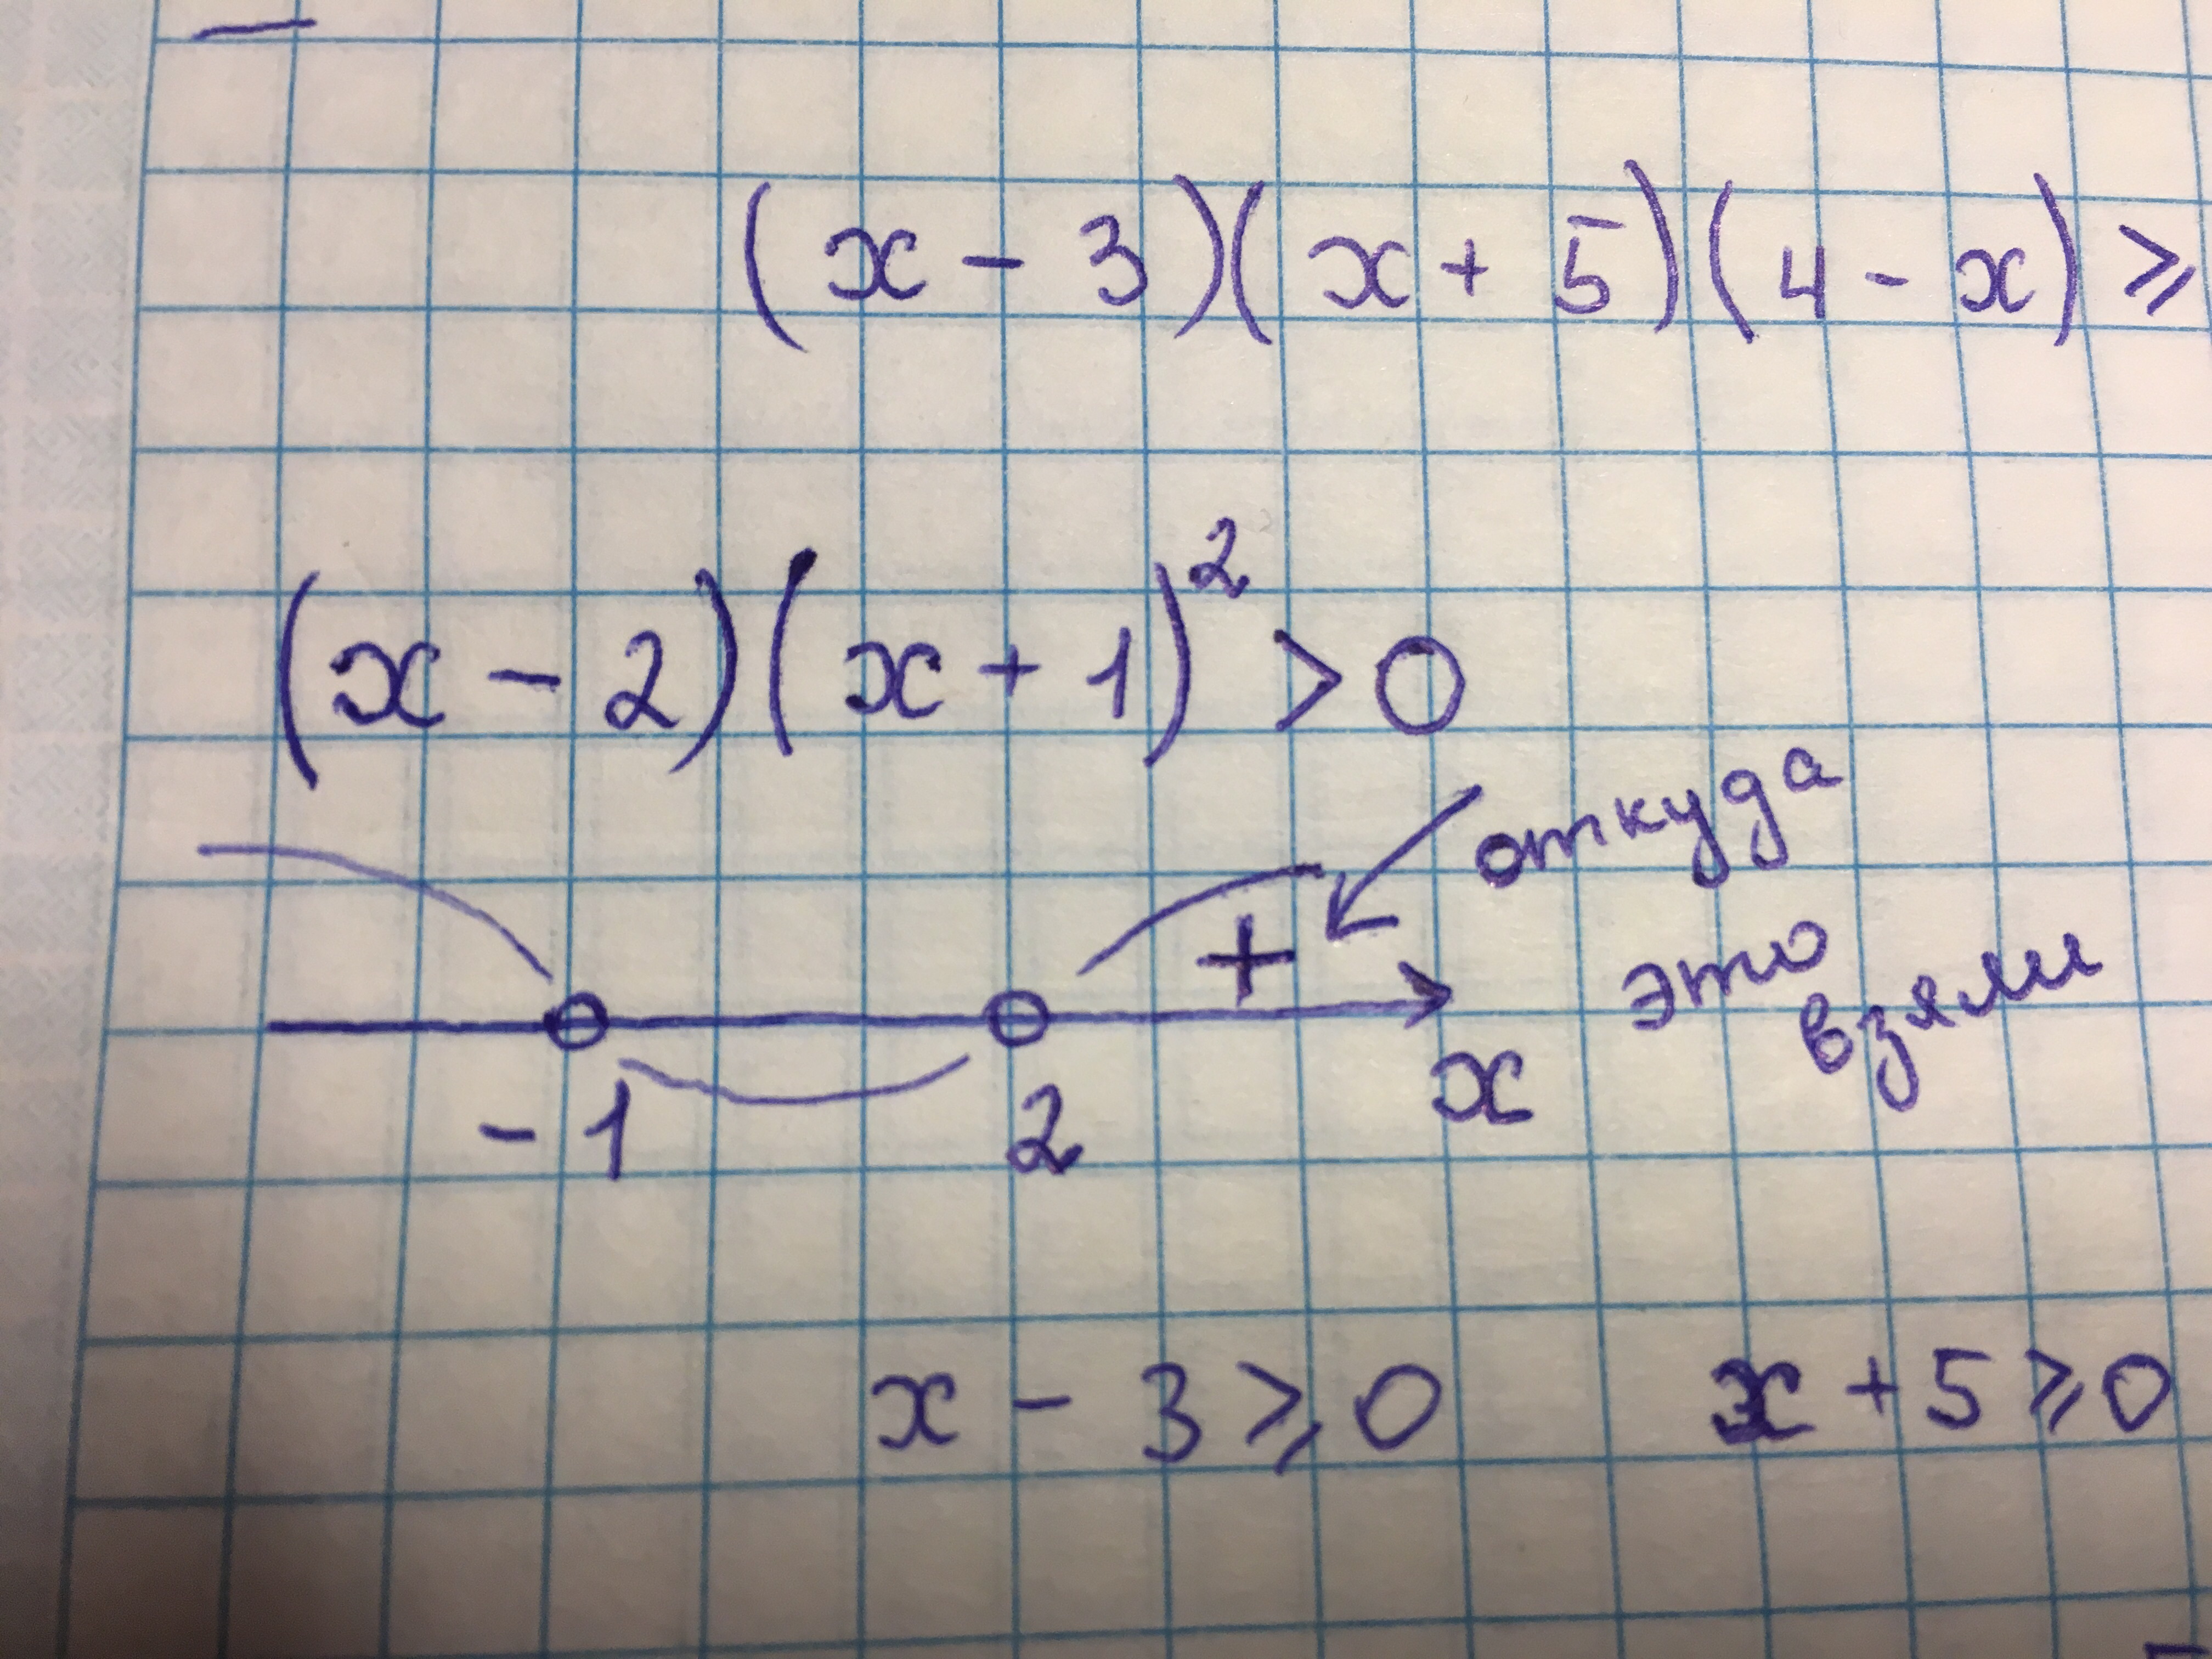 (x - 3)(x + 5)(4 - x) ≥
(x - 2)(x + 1)² > 0
откуда
это
взяли
+
x
-1 2
x - 3 ≥ 0 x + 5 ≥ 0